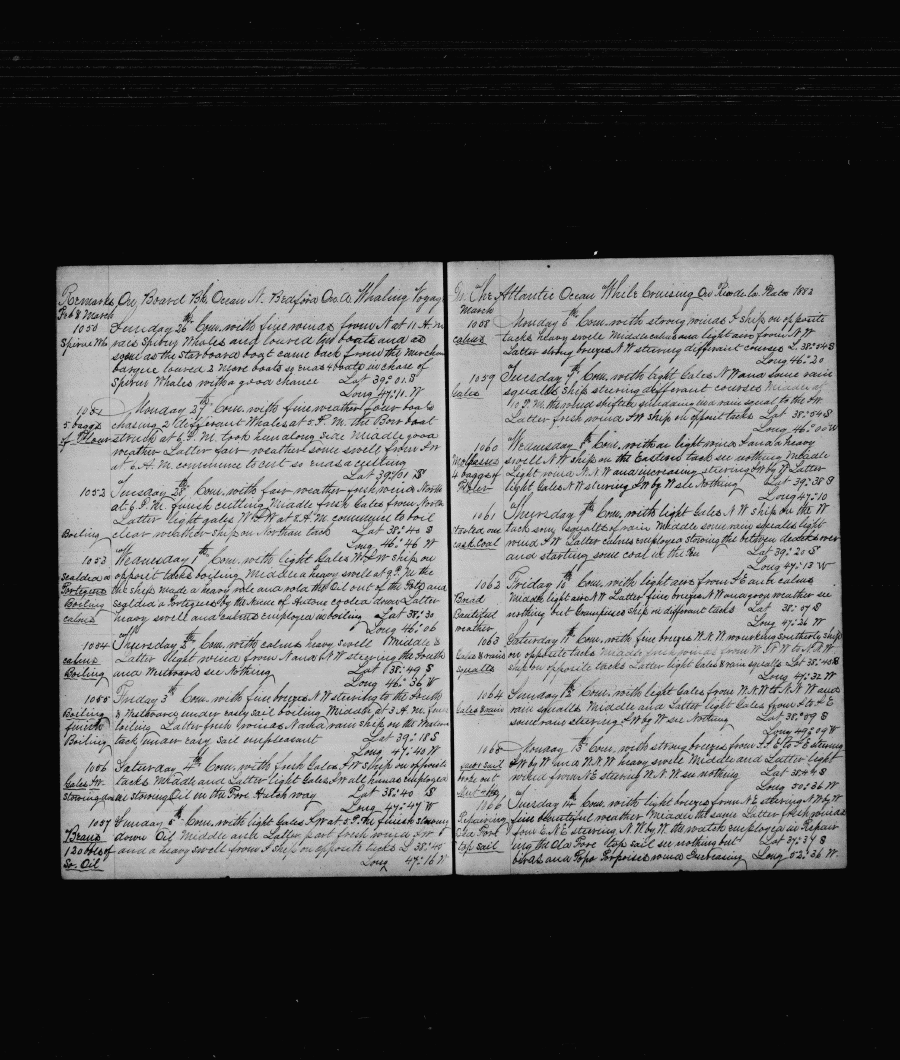 Remarks On Board Bk Ocean N. Bedford On A Whaling Voyag
Feb & March
1050 Sunday 26th Com. with fine winds from N at 11 A.M.
Sperm Wh rais Sperm Whales and loured boats and as
soon as the Starboard boat came back from the Merchan
barque loured 2 more boats so ends 4 boats in chase of
Sperm Whales with a good chance Lat 39:01 S
Long 47:11 W
1051 Monday 27th Com. with fine weather four boats
5 baggs chasing 2 differant Whales at 5 P.M. the Bow boat
of Flour struck at 6 P.M. took him along side Middle good
weather Latter fair weather some swell from SW
at 6 A.M. commence to cut so ends a cutting
Lat 39:01 S
1052 Tuesday 28th Com. with fair weather fresh wind North
at 6 P.M. finish cutting Middle fresh Gales from North
Latter light gales at 8 A.M. commence to boil
Boiling clear weather ship on Northan tack Lat 38:40 S
Long 46:46 W
1053 Wednesday 1th Com. with light Gales ship on
scalded a opposit tacks boiling Middle a heavy swell at 9 P.M. the
Portegees the ship made a heavy role and role the Oil out of the Pots and
Boiling scalded a Portegees by the name of Antone cooled down Latter
calms heavy swell and calms employed in boiling Lat 38:30
Long 46:06
1054 Thursday 2th Com. with calms heavy swell Middle &
calms Latter light wind from N and N W steering the South
Boiling and Westward see Nothing Lat 38:49 S
Long 46:36 W
1055 Friday 3th Com. with fine breezes N W steering to the South
Boiling & Westward under easy sail boiling Middle at 3 A.M. finis
finish boiling Latter fresh winds N and rain ship on the Western
Boiling tack under easy sail unpleasant Lat 39:18 S
Long 47:40 W
1056 Saturday 4th Com. with fresh Gales SW Ship on oposite
Gales SW tacks Middle and Latter light Gales SW all hands employed
Stowing down as stowing Oil in the Fore Hatch way Lat 38:40 S
Long 47:47 W
1057 Sunday 5th Com. with light Gales SW at 5 P.M. finish stowing
down Oil Middle and Latter part fresh wind SW
120 bbls of and a heavy swell from S ship on opposite tacks L 38:45
Sp. Oil Long 47:16 W
In The Atlantic Ocean While Cruising On River de La Plater 1882
March
1058 Monday 6th Com. with strong winds S ship on opposite
calms tacks heavy swell Middle calms and light airs from NW
Latter strong breezes NW steering differant courses L 38:54 S
Long 46:20
1059 Tuesday 7th Com. with light Gales NW and some rain
Gales squalls ship steering differant courses Middle at
10 P.M. the wind shifted suddan in a rain squal to the SW
Latter fresh wind SW ship on opposit tacks Lat 38:54 S
Long 46:00 W
1060 Wednesday 8th Com. with light wind S and a heavy
Molasses swell NW ship on the Eastern tack see nothing Middle
4 baggs of light wind N.N.W and increasing steering SW by W Latter
light Gales NW steering SW by W see Nothing Lat 39:38 S
Long 47:10
1061 Thursday 9th Com. with light Gales NW ship on the W
started one tack some squalls of rain Middle some rain squalls light
cask Coal wind SW Latter calms employed stowing the between decks over
and starting some coal in the Lat 39:20 S
Long 47:13 W
1062 Friday 10th Com. with light airs from SE and calms
Middle light airs NW Latter fine breezes NW and good weather see
Beautiful nothing but Grampuses ship on differant tacks Lat 38:57 S
weather Long 47:26 W
1063 Saturday 11th Com. with fine breezes W.N.W. working southerly ship
Gales & rain on opposite tacks Middle fresh winds from to N.N.W
squalls ship on opposite tacks Latter light Gales & rain squalls Lat 38:48 S
Long 47:32 W
1064 Sunday 12th Com. with light Gales from W.N.W to N.N.W and
Gales & rain rain squalls Middle and Latter light Gales from S to SE
some rain steering SW by W see Nothing Lat 38:09 S
Long 49:09 W
1065 Monday 13th Com. with strong breezes from S.S.E to S.E steering
SW by W and W.N.W heavy swell Middle and Latter light
broke out wind from N.E steering W.N.W see nothing Lat 38:44 S
Long 50:36 W
1066 Tuesday 14th Com. with light breezes from N.E steering N.W by W
Repairing fine beautiful weather Middle the same Latter fresh winds
Old Fore from E.N.E steering N.W. by W. the watch employed in Repair
top sail ing the Old Fore top sail see nothing but Lat 37:34 S
birds and Porpoises wind Increasing Long 52:36 W.